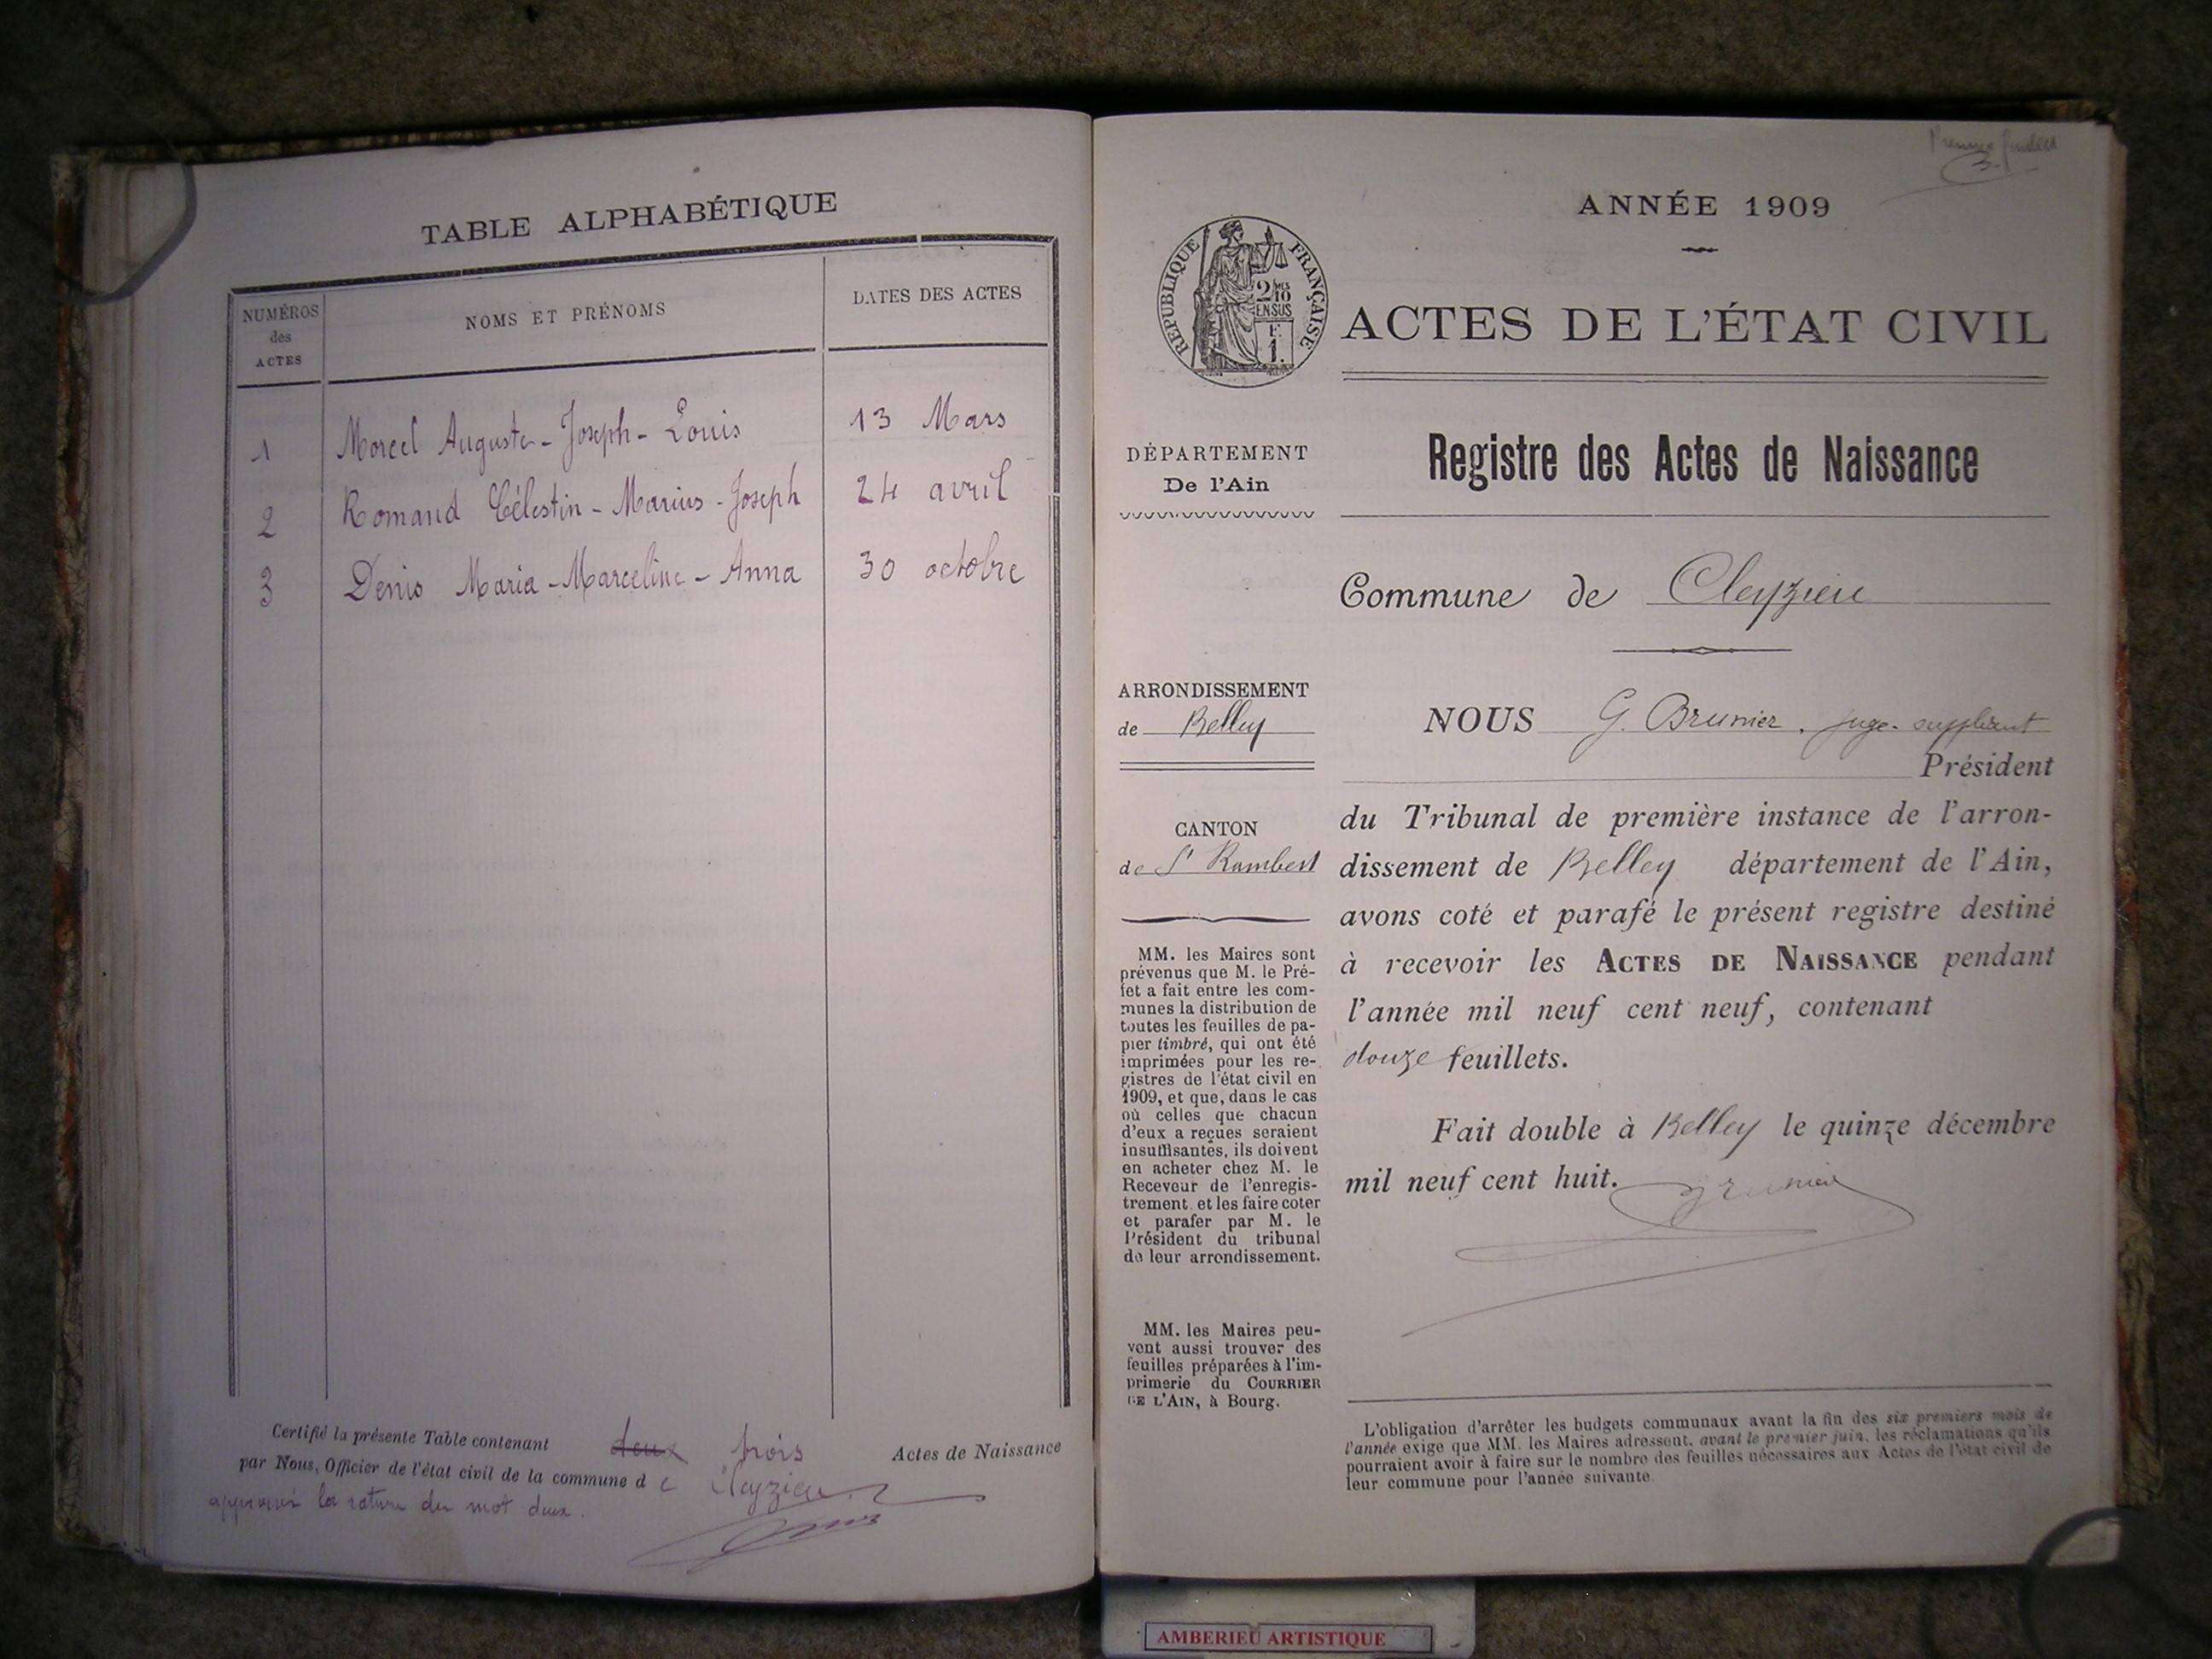 TABLE ALPHABÉTIQUE
NUMÉROS des ACTES
NOMS ET PRÉNOMS
DATES DES ACTES
1 Morcel Auguste-Joseph-Louis 13 Mars
2 Romand Célestin-Marius-Joseph 24 avril
3 Denis Maria-Marceline-Anna 30 octobre
Certifié la présente Table contenant deux trois Actes de Naissance
par Nous, Officier de l'état civil de la commune de Cleyzieu.
approuvé la rature du mot deux.
Premier feuillet
ANNÉE 1909
RÉPUBLIQUE FRANÇAISE
2/10 EN SUS
F. 1.
ACTES DE L'ÉTAT CIVIL
DÉPARTEMENT
De l'Ain
Registre des Actes de Naissance
Commune de Cleyzieu
ARRONDISSEMENT
de Belley
CANTON
de St Rambert
MM. les Maires sont
prévenus que M. le Pré-
fet a fait entre les com-
munes la distribution de
toutes les feuilles de pa-
pier timbré, qui ont été
imprimées pour les re-
gistres de l'état civil en
1909, et que, dans le cas
où celles que chacun
d'eux a reçues seraient
insuffisantes, ils doivent
en acheter chez M. le
Receveur de l'enregis-
trement et les faire coter
et parafer par M. le
Président du tribunal
de leur arrondissement.
MM. les Maires peu-
vent aussi trouver des
feuilles préparées à l'im-
primerie du COURRIER
DE L'AIN, à Bourg.
NOUS G. Brunier, juge suppléant
Président
du Tribunal de première instance de l'arron-
dissement de Belley département de l'Ain,
avons coté et parafé le présent registre destiné
à recevoir les ACTES DE NAISSANCE pendant
l'année mil neuf cent neuf, contenant
douze feuillets.
Fait double à Belley le quinze décembre
mil neuf cent huit.
Brunier
L'obligation d'arrêter les budgets communaux avant la fin des six premiers mois de
l'année exige que MM. les Maires adressent, avant le premier juin, les réclamations qu'ils
pourraient avoir à faire sur le nombre des feuilles nécessaires aux Actes de l'état civil de
leur commune pour l'année suivante.
AMBERIEU ARTISTIQUE